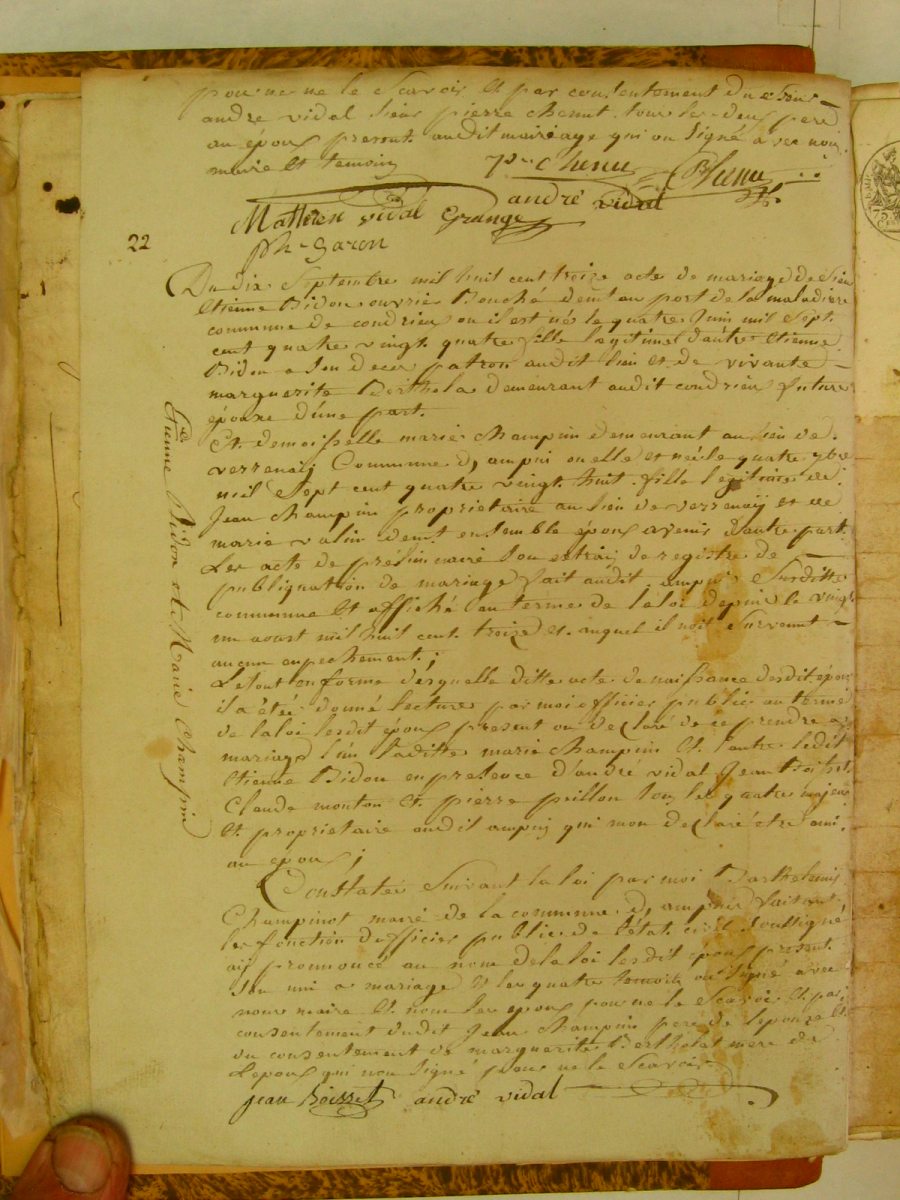 pour ne le Scavoir et par consentement du e Sieur
andre vidal Sieur pierre chenut tous les deux pere
au époux present audit mariage qui on Signé avec nous
maire et temoin
P. Chenu BChenu
Mathieu vidal Grange andré vidal
ph garon
22
Du dix Septembre mil huit cent treize acte de mariage de Sieur
Etienne Bidon ouvrié demt au port de la maladiere
commune de condrieu ou il est né le quatre Juin mil Sept
cent quatre vingt quatre fille legitime dautre Etienne
Bidon a Son deces patron audit lieu et de vivante
marguerite Berthela demeurant audit condrieu future
épouxe d'une part.
Et demoisselle marie champin demeurant au lieu de
verrenaij Commune d, ampui ou elle et née le quatre 9bre
mil Sept cent quatre vingt huit fille legitime de
Jean champin propriétaire au lieu de verrenaij et de
marie valin demt ensemble époux avenir d'autre part.
Les acte de préliminaire Son extrai de registre de
publiquation de mariage fait audit ampuis Susditte
commune et affiché au terme de la loi depuis le vingt
un aoust mil huit cent treize et auquel il noit Survenut
aucun enpechement ;
Le tout en forme desquelle ditte acte de naissance desdit époux
il a été donné lecture par moi officier public au terme
de la loi lesdit époux present on declaré de ce prendre a
mariage l'un laditte marie champin et l'autre ledit
Etienne Bidon en presence d'andré vidal Jean Boisset
Claude monton et pierre prillon tous les quatre majeur
et proprietaire audit ampuij qui mon declaré etre ami
au époux ;
Constatée Suivant la loi par moi Barthelemis
Champinot maire de la commune d, ampuis faisant
les fonction d'officier public de l'état civil Soussigné
aij prononcé au nom de la loi lesdit époux present
Son uni a mariage et les quatre temoin on Signé avec
nous maire et nom les epoux pour ne le Scavoir et par
consentement dudit Jean champin pere de l'epouze et
du consentement de marguerite Berthelat mere de
Lepoux qui non Signé pour ne le Scavoir
jean Boisset andré vidal
Etienne Bidon et Marie Champin